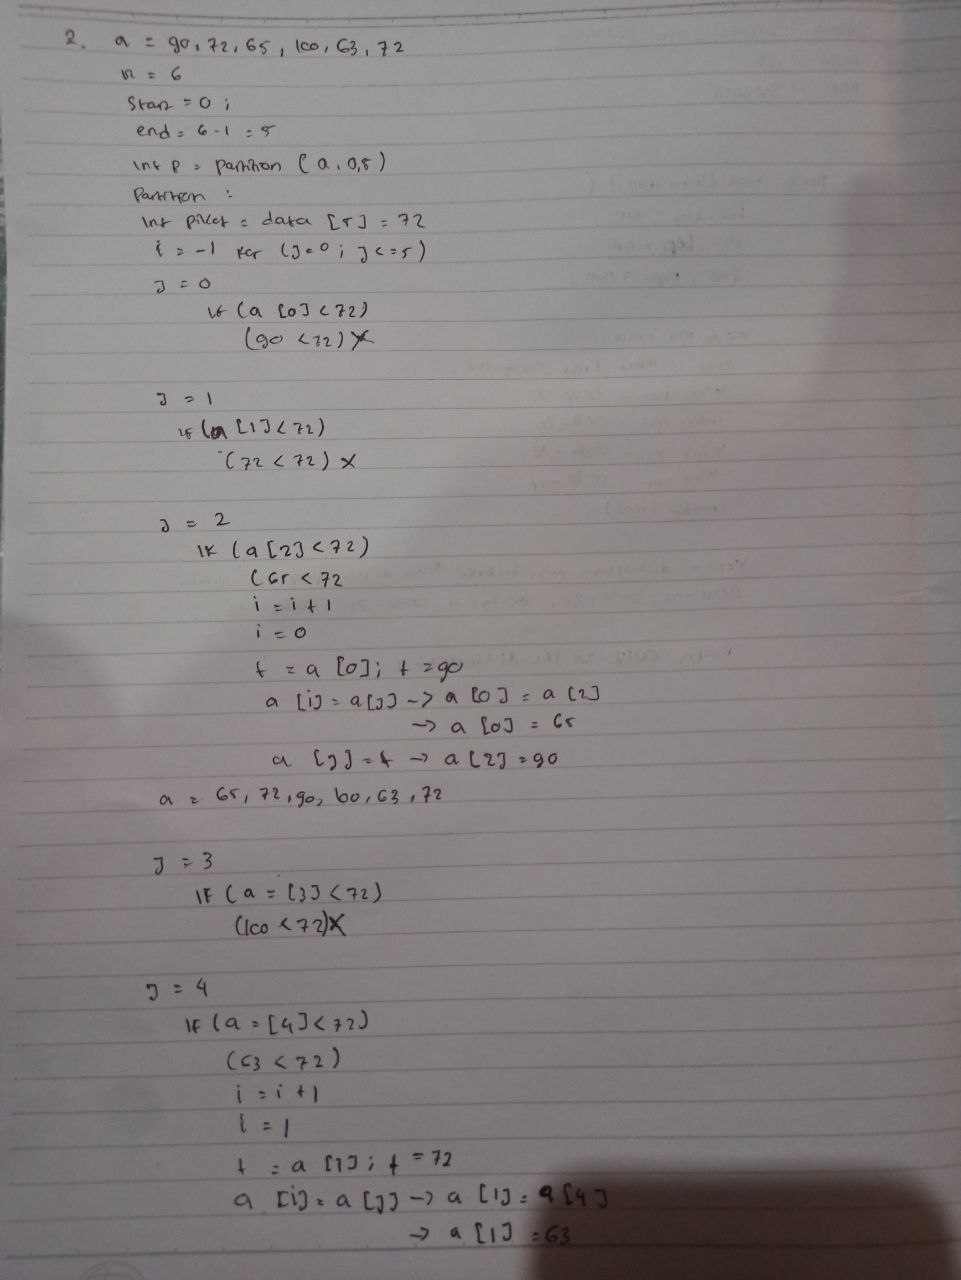 2. a = 90, 72, 65, 100, 63, 72
n = 6
Start = 0 ;
end = 6-1 = 5
int p = partition ( a, 0,5 )
Partition :
int pivot = data [5] = 72
i = -1 for (j=0 ; j<=5)
j = 0
if (a [0] < 72)
(90 < 72) X
j = 1
if (a [1] < 72)
(72 < 72) X
j = 2
IF (a [2] < 72)
(65 < 72
i = i + 1
i = 0
t = a [0]; t = 90
a [i] = a[j] -> a [0] = a [2]
-> a [0] = 65
a [j] = t -> a [2] = 90
a = 65, 72, 90, 100, 63, 72
j = 3
IF (a = [3] < 72)
(100 < 72) X
j = 4
IF (a = [4] < 72)
(63 < 72)
i = i + 1
i = 1
t = a [1]; t = 72
a [i] = a [j] -> a [1] = a [4]
-> a [1] = 63